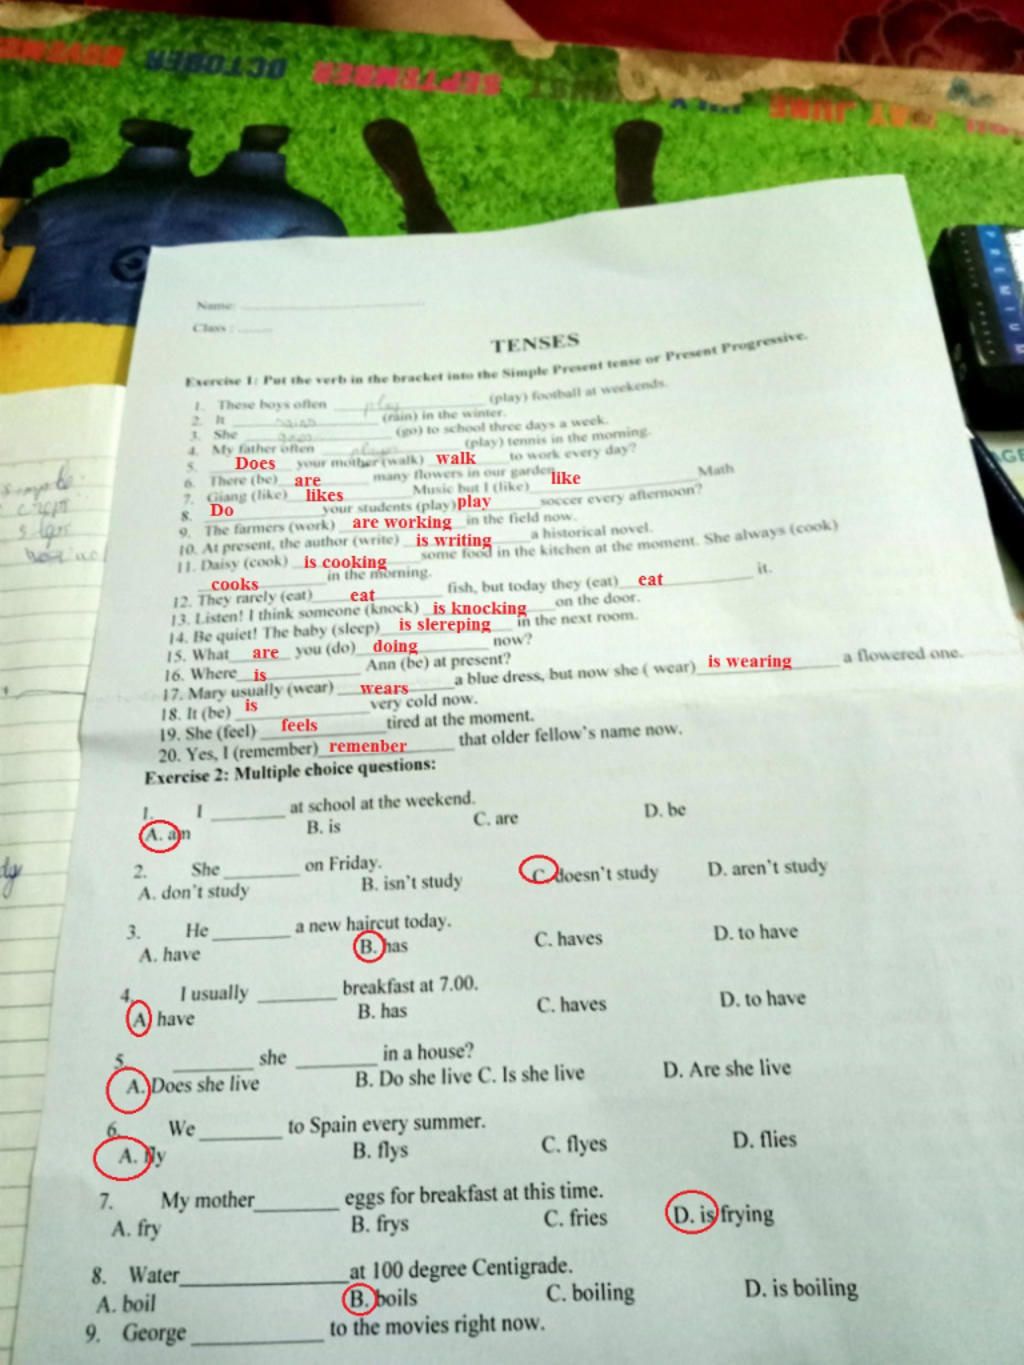 NOVEMBER OCTOBER SEPTEMBER JULY JUNE MAY
Name:
Class :
TENSES
Exercise 1: Put the verb in the bracket into the Simple Present tense or Present Progressive.
1. These boys often play (play) football at weekends.
2. It rains (rain) in the winter.
3. She goes (go) to school three days a week.
4. My father often plays (play) tennis in the morning.
5. Does your mother (walk) walk to work every day?
6. There (be) are many flowers in our garden
7. Giang (like) likes Music but I (like) like Math
8. Do your students (play) play soccer every afternoon?
9. The farmers (work) are working in the field now.
10. At present, the author (write) is writing a historical novel.
11. Daisy (cook) is cooking some food in the kitchen at the moment. She always (cook)
cooks in the morning.
12. They rarely (eat) eat fish, but today they (eat) eat it.
13. Listen! I think someone (knock) is knocking on the door.
14. Be quiet! The baby (sleep) is slereping in the next room.
15. What are you (do) doing now?
16. Where is Ann (be) at present?
17. Mary usually (wear) wears a blue dress, but now she ( wear) is wearing a flowered one.
18. It (be) is very cold now.
19. She (feel) feels tired at the moment.
20. Yes, I (remember) remenber that older fellow's name now.
Exercise 2: Multiple choice questions:
1. I ______ at school at the weekend.
A. am B. is C. are D. be
2. She ______ on Friday.
A. don't study B. isn't study C. doesn't study D. aren't study
3. He ______ a new haircut today.
A. have B. has C. haves D. to have
4. I usually ______ breakfast at 7.00.
A have B. has C. haves D. to have
5. ______ she ______ in a house?
A. Does she live B. Do she live C. Is she live D. Are she live
6. We ______ to Spain every summer.
A. fly B. flys C. flyes D. flies
7. My mother ______ eggs for breakfast at this time.
A. fry B. frys C. fries D. is frying
8. Water ______ at 100 degree Centigrade.
A. boil B. boils C. boiling D. is boiling
9. George ______ to the movies right now.